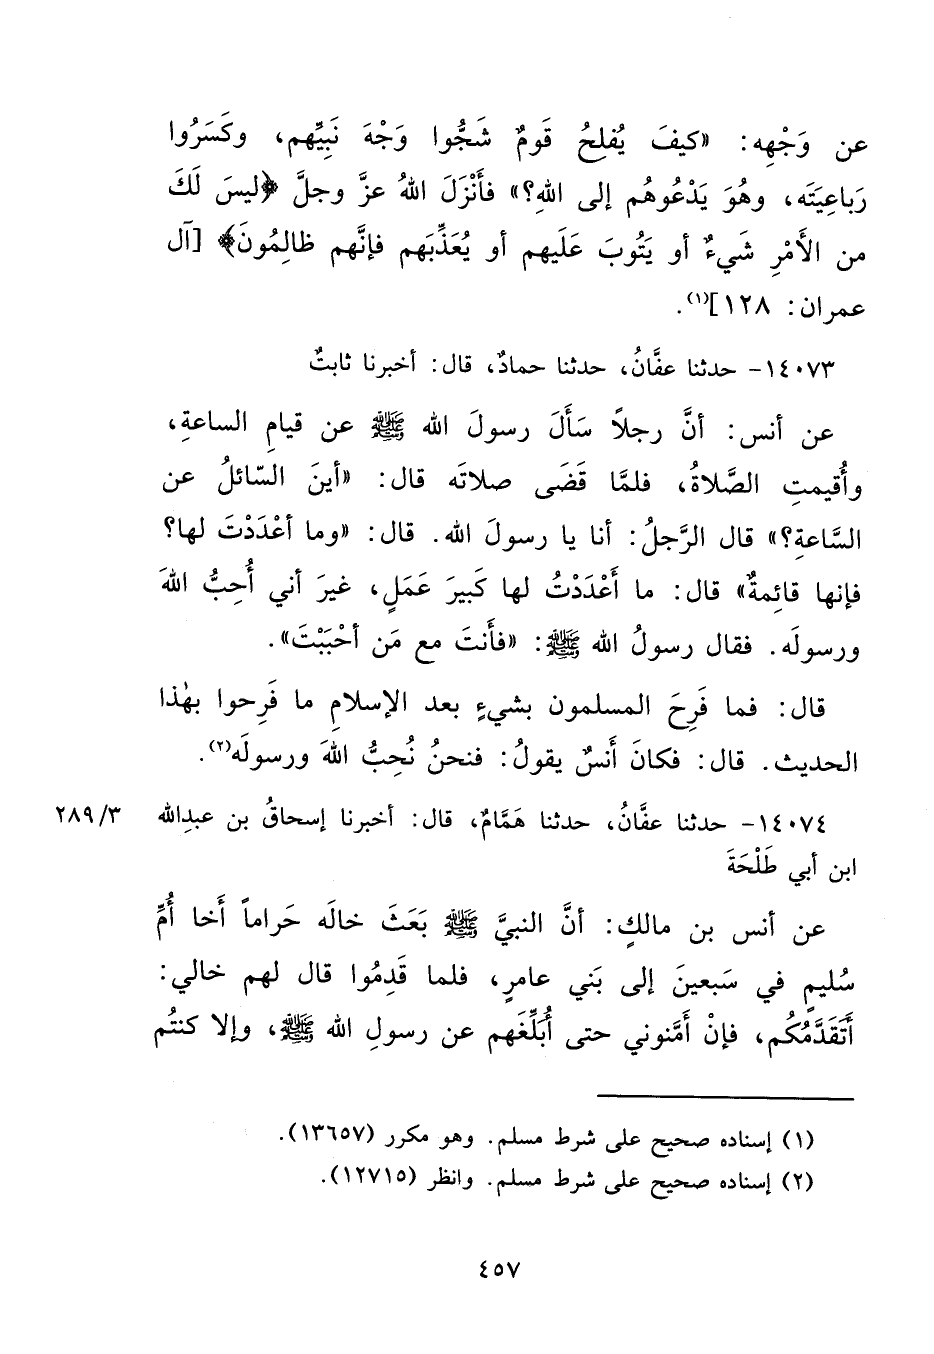 عن وَجْهِه: «كيفَ يُفلحُ قَومٌ شَجُّوا وَجْهَ نَبِيِّهم، وكَسَرُوا
رَباعِيَتَه، وهُوَ يَدْعُوهُم إلى اللهِ؟» فأَنْزَلَ اللهُ عزَّ وجلَّ ﴿ليسَ لَكَ
من الأَمْرِ شَيءٌ أو يَتُوبَ عَلَيهم أو يُعَذِّبَهم فإنَّهم ظالِمُونَ﴾ [آل
عمران: ١٢٨](١).
١٤٠٧٣- حدثنا عفَّانُ، حدثنا حمادٌ، قال: أخبرنا ثابتٌ
عن أنس: أنَّ رجلاً سَأَلَ رسولَ الله ﷺ عن قيامِ الساعةِ،
وأُقيمتِ الصَّلاةُ، فلمَّا قَضَى صلاتَه قال: «أينَ السّائلُ عن
السَّاعةِ؟» قال الرَّجلُ: أنا يا رسولَ الله. قال: «وما أعْدَدْتَ لها؟
فإنها قائِمةٌ» قال: ما أَعْدَدْتُ لها كَبيرَ عَمَلٍ، غيرَ أني أُحِبُّ اللهَ
ورسولَه. فقال رسولُ الله ﷺ: «فأَنتَ مع مَن أحْبَبْتَ».
قال: فما فَرِحَ المسلمون بشيءٍ بعد الإسلامِ ما فَرِحوا بهٰذا
الحديث. قال: فكانَ أَنسٌ يقولُ: فنحنُ نُحِبُّ اللهَ ورسولَه(٢).
١٤٠٧٤- حدثنا عفَّانُ، حدثنا هَمَّامٌ، قال: أخبرنا إسحاقُ بن عبدِالله ٢٨٩/٣
ابن أبي طَلْحَةَ
عن أنس بن مالكٍ: أنَّ النبيَّ ﷺ بَعَثَ خالَه حَراماً أَخا أُمِّ
سُليمٍ في سَبعينَ إلى بَني عامرٍ، فلما قَدِمُوا قال لهم خالي:
أَتَقَدَّمُكُم، فإنْ أَمَّنوني حتى أُبَلِّغَهم عن رسولِ الله ﷺ، وإلا كنتُم
(١) إسناده صحيح على شرط مسلم. وهو مكرر (١٣٦٥٧).
(٢) إسناده صحيح على شرط مسلم. وانظر (١٢٧١٥).
٤٥٧